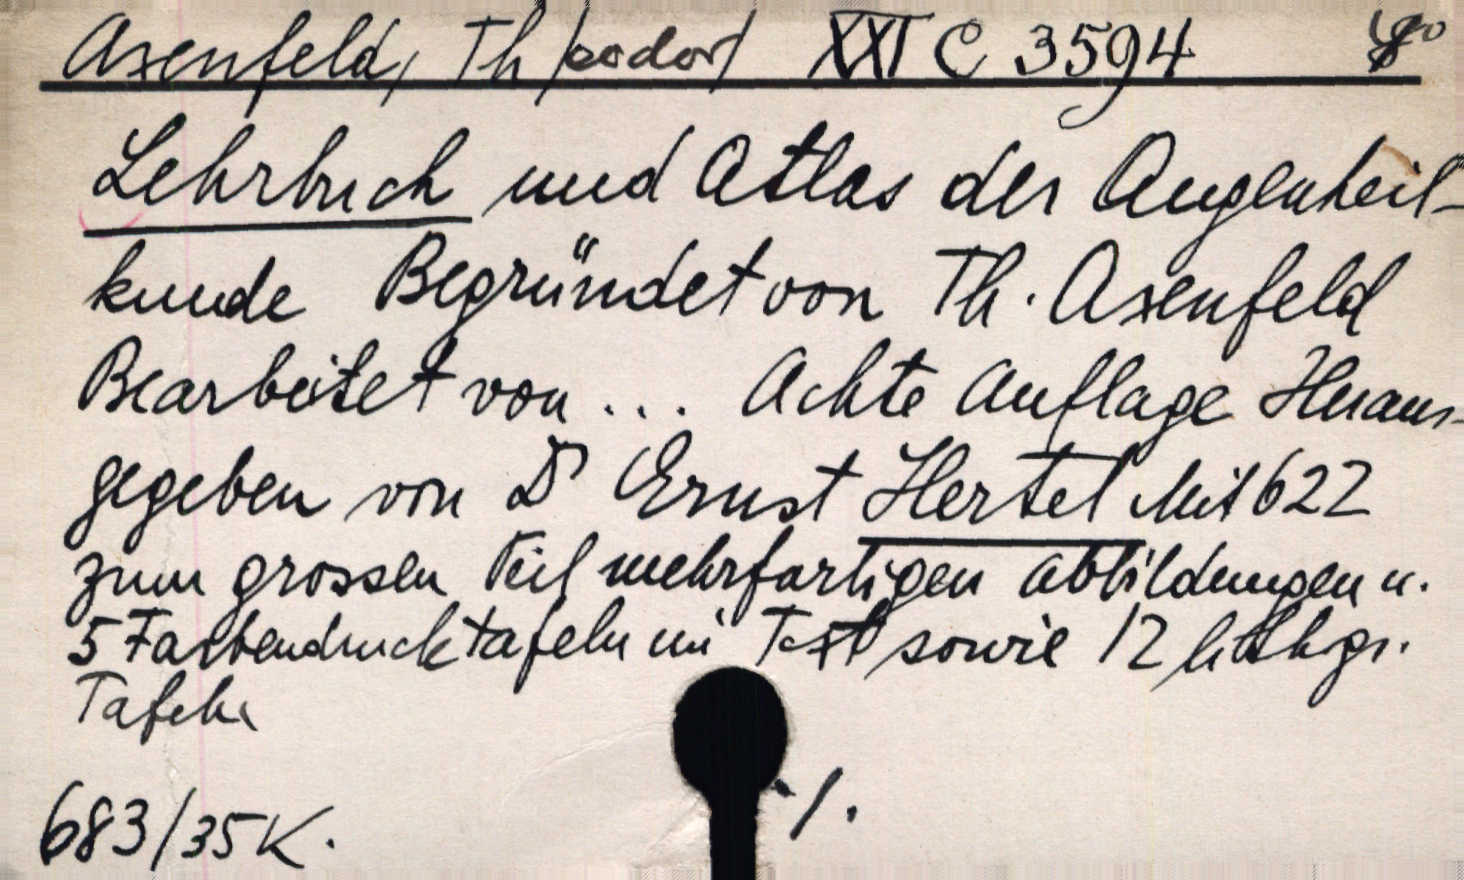 Axenfeld, Th/eodor/ XXI C 3594 8°
Lehrbuch und Atlas der Augenheil-
kunde Begründet von Th. Axenfeld
Bearbeitet von ... Achte Auflage Heraus-
gegeben von Dr Ernst Hertel Mit 622
zum grossen Teil mehrfartigen Abbildungen u.
5 Farbendrucktafeln im Text sowie 12 lithogr.
Tafeln
683/35K. ./.